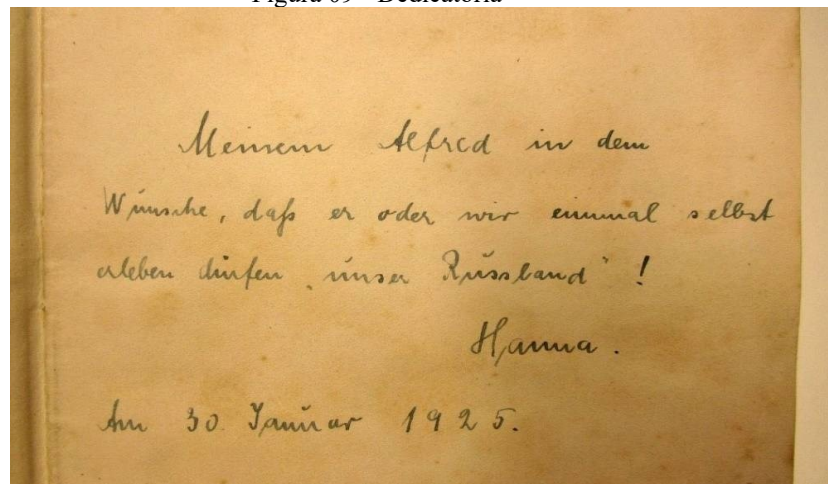 Meinem Alfred in dem
Wunsche, daß er oder wir einmal selbst
erleben dürfen „unser Russland“ !
Hanna.
Am 30. Januar 1925.